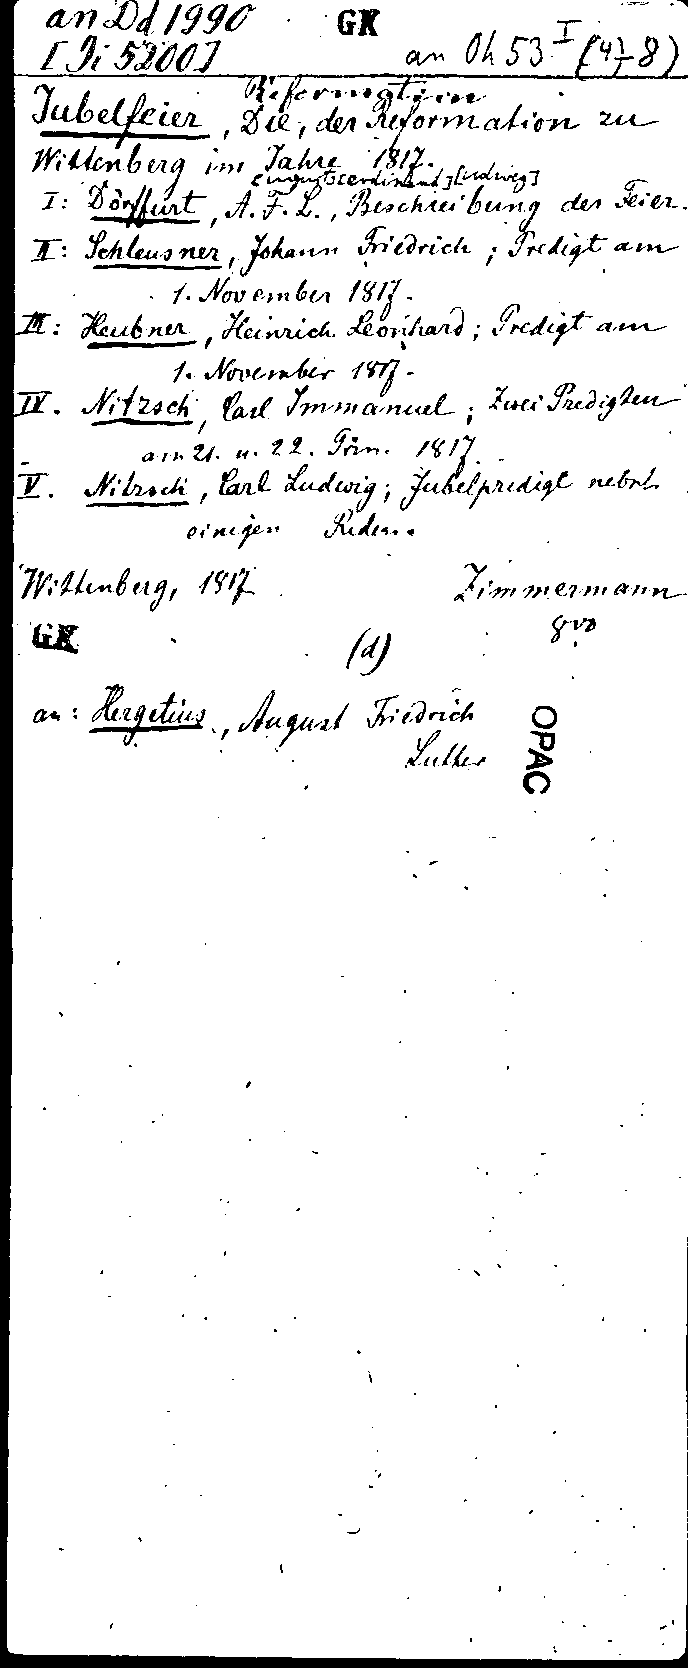 an Dd 1990 GK
[Ji 5200] an Oh 53 I (4)-8)
Reformation
Jubelfeier, Die, der Reformation zu
Wittenberg im Jahre 1817.
[ugust] [erdinand] [udwig]
I: Dörffurt, A. F. L., Beschreibung der Feier.
II: Schleusner, Johann Friedrich; Predigt am
1. November 1817.
III: Heubner, Heinrich Leonhard; Predigt am
1. November 1817.
IV. Nitzsch, Carl Immanuel; Zwei Predigten
am 21. u. 22. Trin. 1817.
V. Nitzsch, Carl Ludwig; Jubelpredigt nebst
einigen Reden.
Wittenberg, 1817 Zimmermann
GK 8vo
(d)
an: Hergetius, August Friedrich
Luther
OPAC